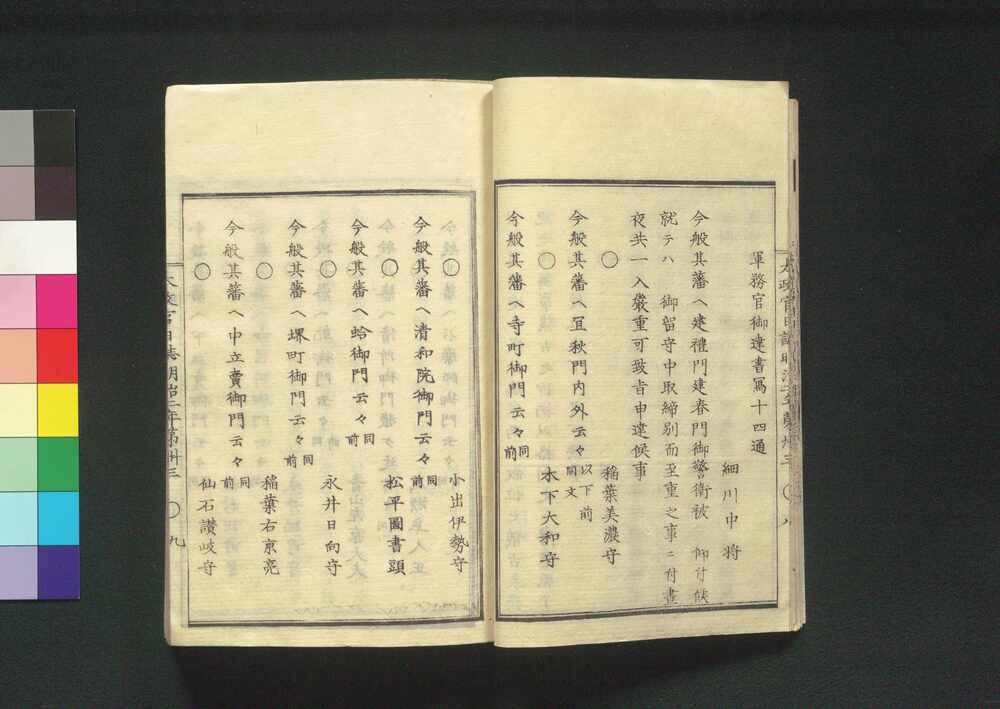 太政官日誌明治二年第卅三 〇 八
軍務官御達書寫十四通
細川中將
今般其藩ヘ建禮門建春門御警衞被 仰付候
就テハ 御留守中取締別而至重之事ニ付晝
夜共一入嚴重可致旨申達候事
〇 稲葉美濃守
今般其藩ヘ宜秋門内外云々以下前同文
〇 木下大和守
今般其藩ヘ寺町御門云々同前
〇 小出伊勢守
今般其藩ヘ清和院御門云々同前
〇 松平圖書頭
今般其藩ヘ蛤御門云々同前
〇 永井日向守
今般其藩ヘ堺町御門云々同前
〇 稲葉右京亮
今般其藩ヘ中立賣御門云々同前
〇 仙石讃岐守
太政官日誌明治二年第卅三 〇 九